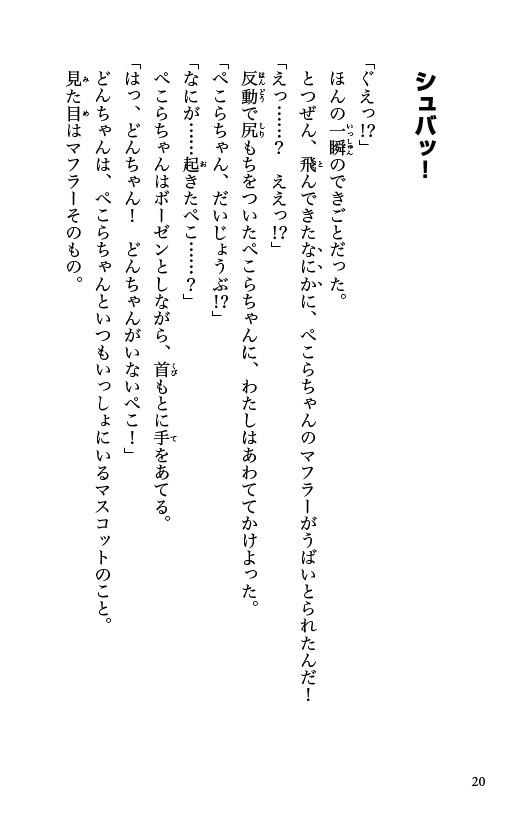 シュバッ！
「ぐえっ!?」
ほんの一瞬のできごとだった。
とつぜん、飛んできたなにかに、ぺこらちゃんのマフラーがうばいとられたんだ！
「えっ……？　ええっ!?」
反動で尻もちをついたぺこらちゃんに、わたしはあわててかけよった。
「ぺこらちゃん、だいじょうぶ!?」
「なにが……起きたぺこ……？」
ぺこらちゃんはボーゼンとしながら、首もとに手をあてる。
「はっ、どんちゃん！　どんちゃんがいないぺこ！」
どんちゃんは、ぺこらちゃんといつもいっしょにいるマスコットのこと。
見た目はマフラーそのもの。
20